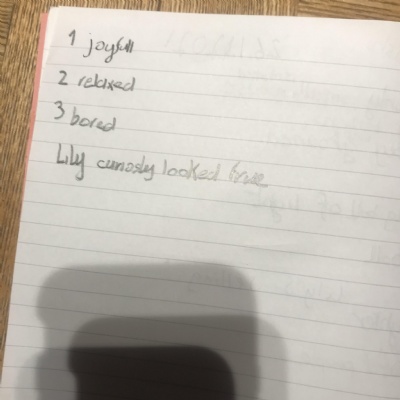 1 joyfull
2 relaxed
3 bored
Lily curiosly looked